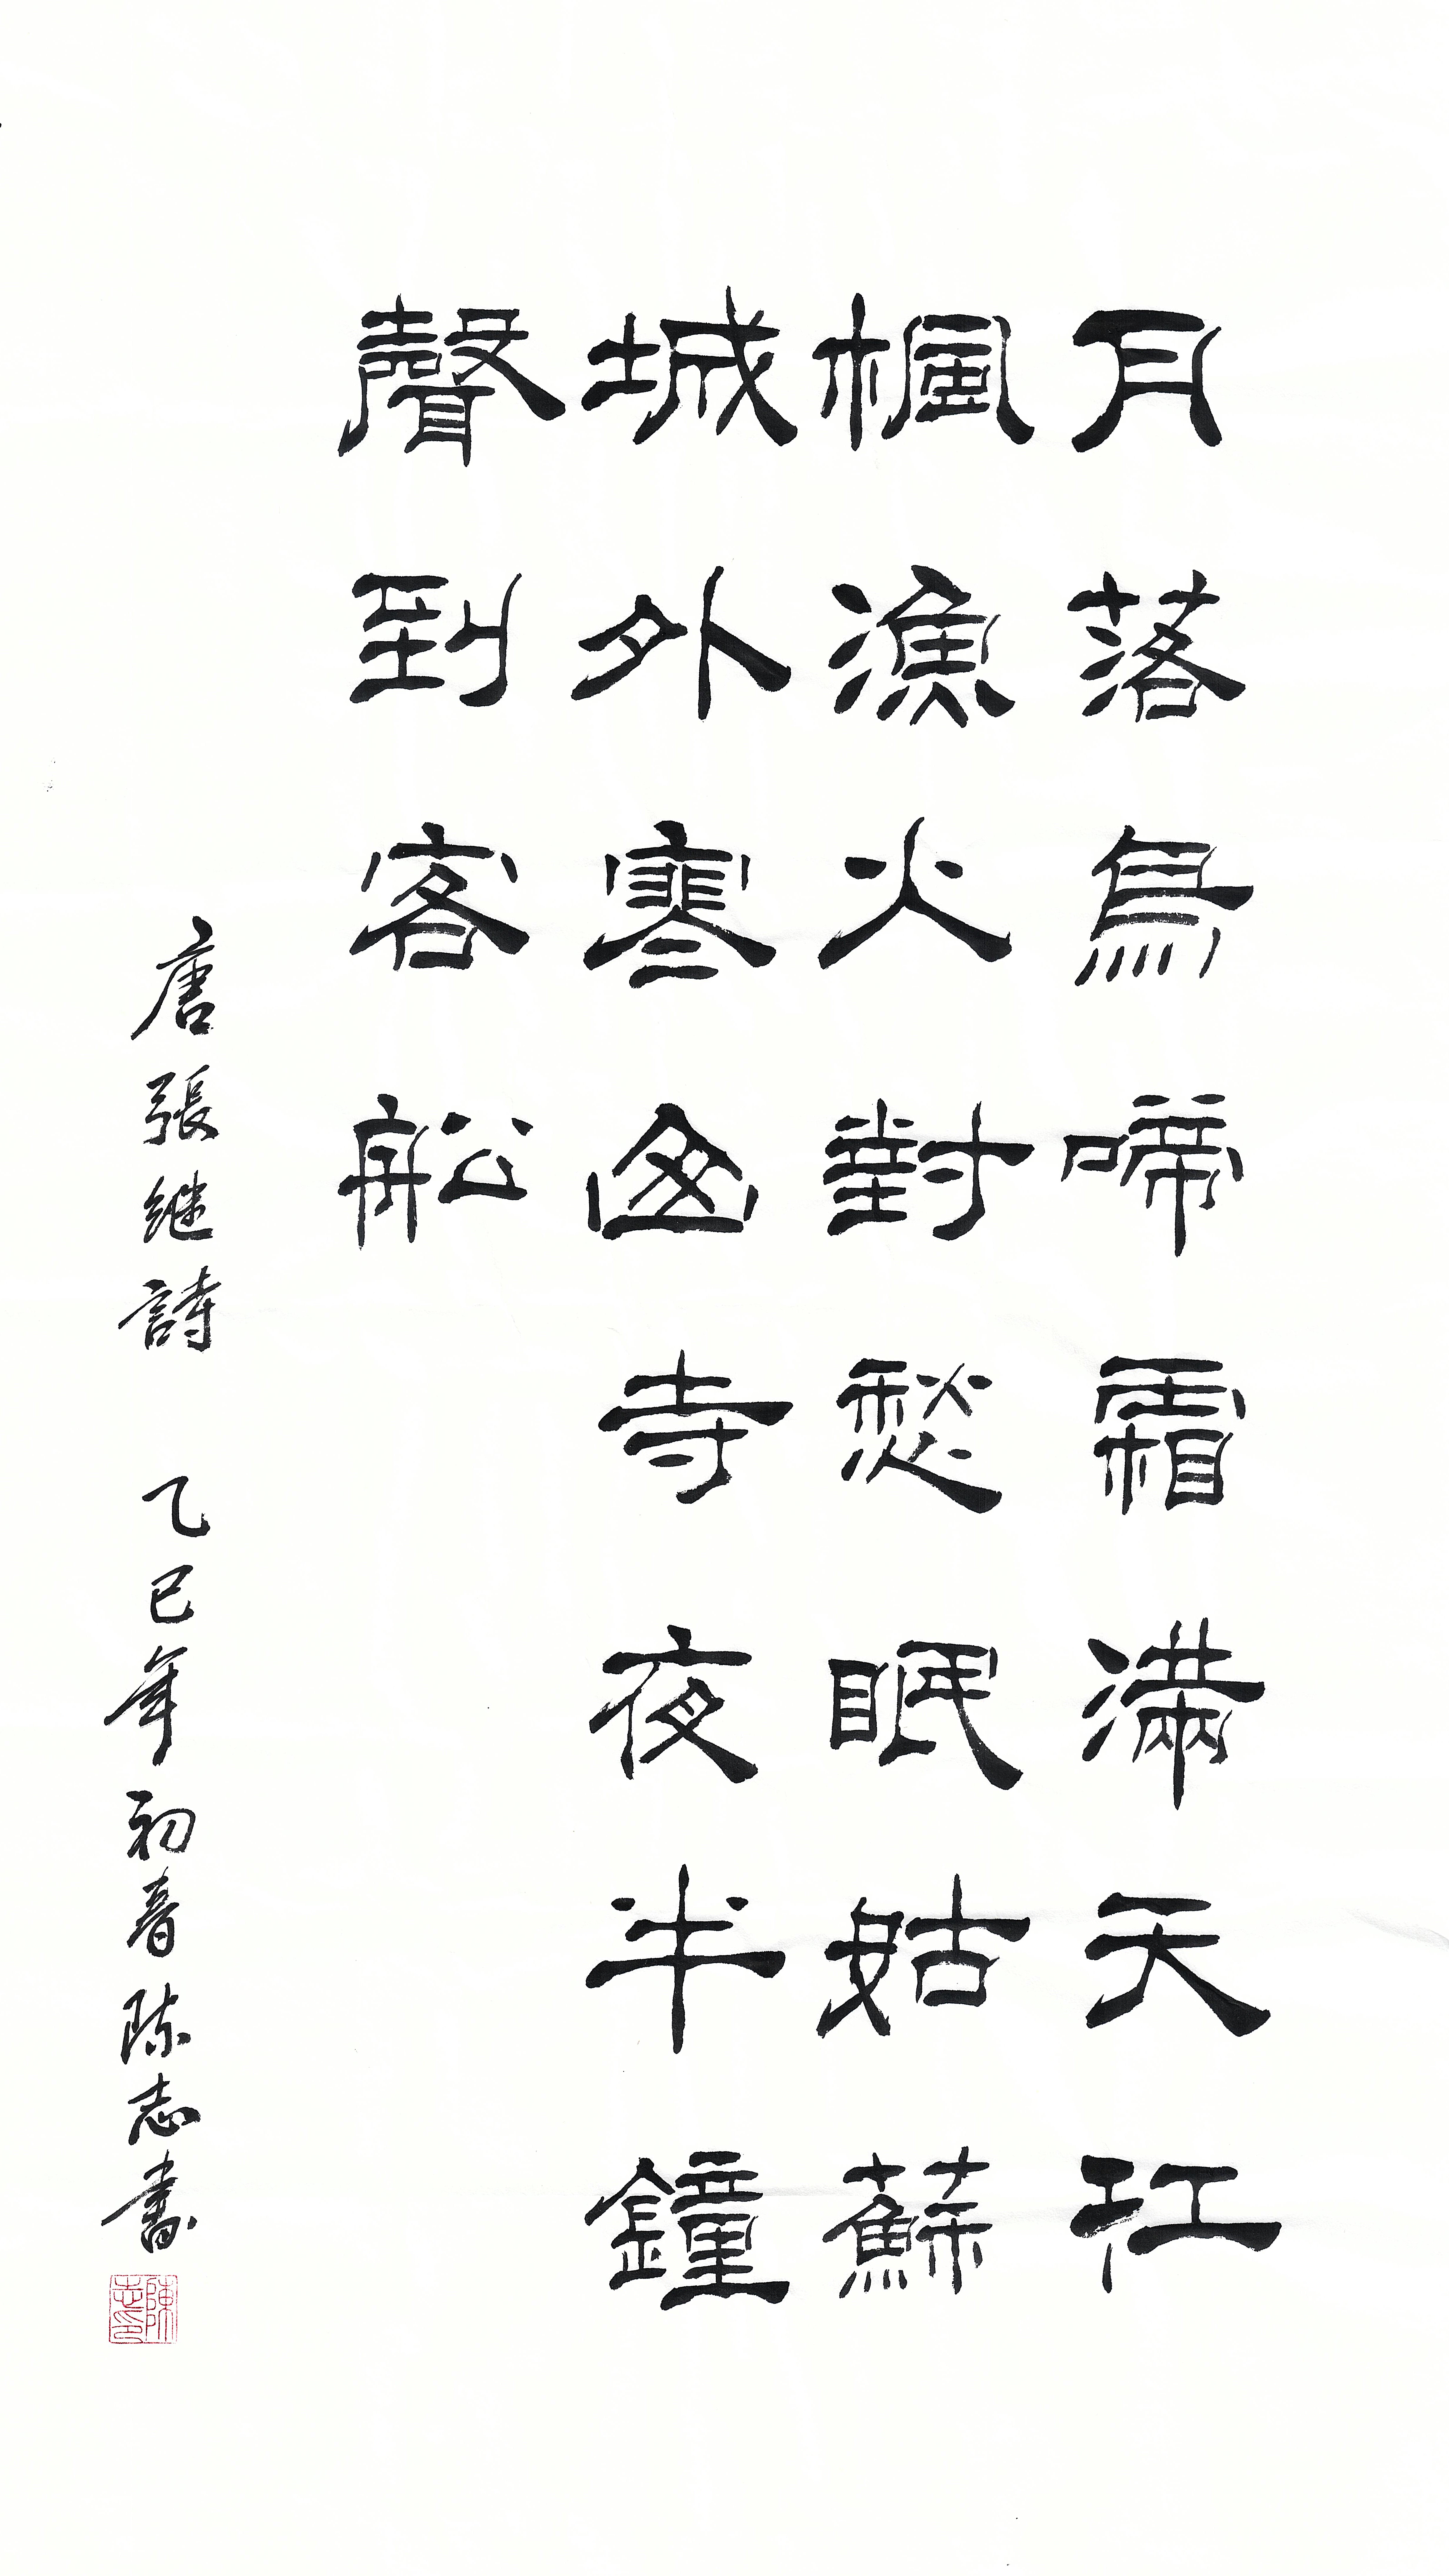 月落烏啼霜滿天江
楓漁火對愁眠姑蘇
城外寒山寺夜半鐘
聲到客舩
唐張继詩 乙巳年初春陈志書
陳志印